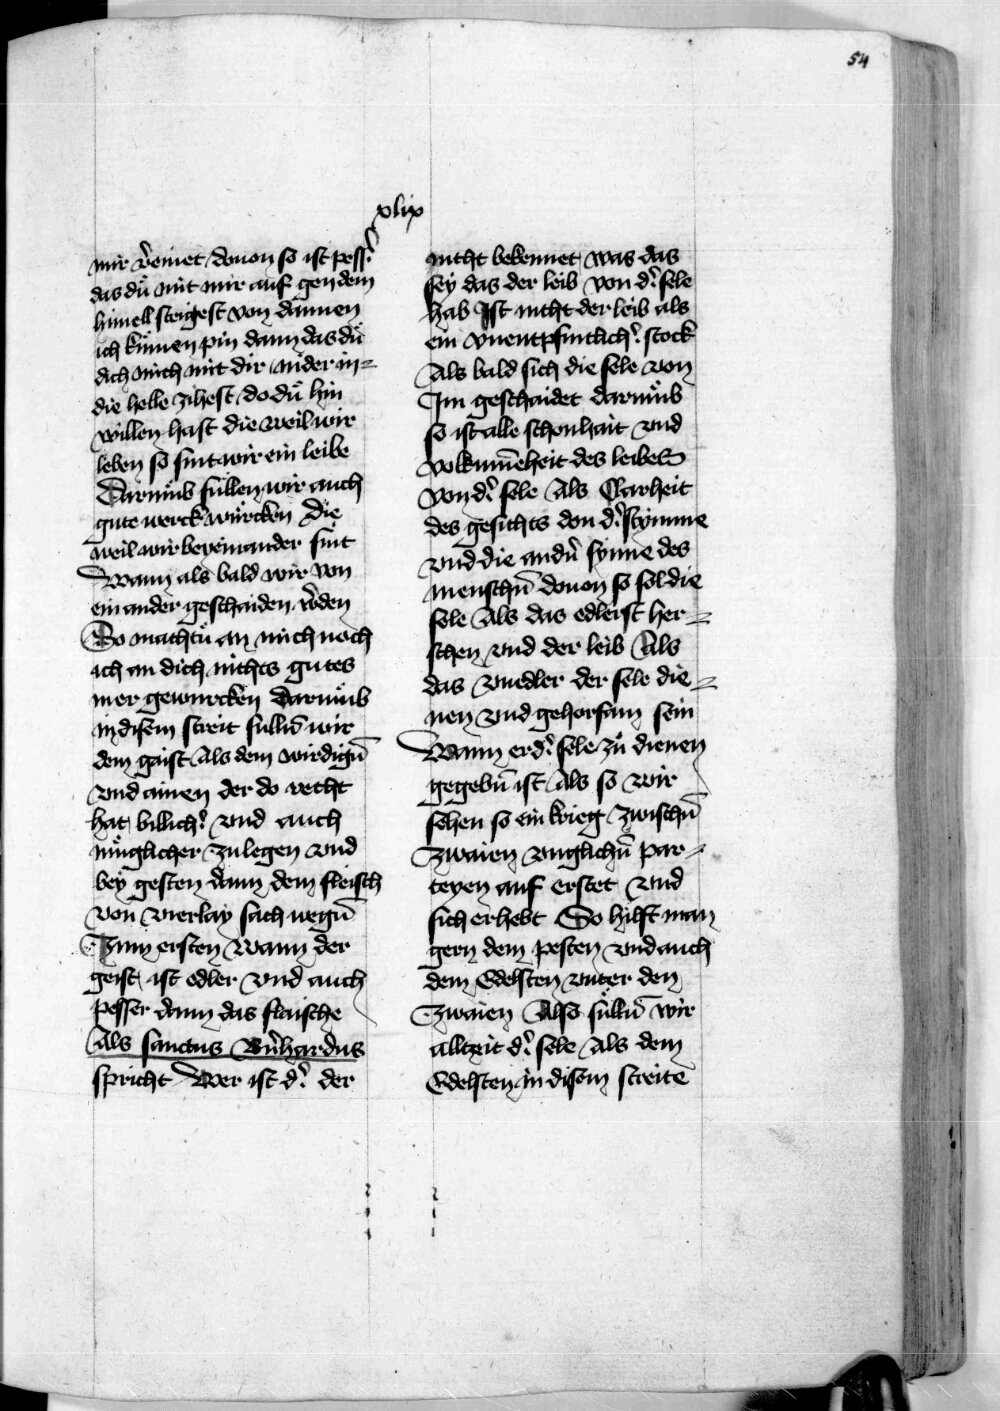 54
xlix
mir v̾einet douon so ist pess̾
das dů mit mir auf gen dem
himell steigest von dannen
ich kumen pin dann das dů
dich mich mit dir nider in
die helle zihest do dů hin
willen hast die weil wir
leben so sint wir ein leibe
Darumb sullen wir auch
gute werck würcken die
weil wir beyeinander sint
Wann als bald wir von
ein ander geschaiden w̾den
So machtu an mich noch
ich an dich nichts gutes
mer gewurcken Darumb
in disem streit sulln̄ wir
dem gaist als dem wirdign̄
vnd ainen der do recht
hat billich̾ vnd auch
muglicher zulegen vnd
bey gesten dann dem fleisch
von vierlay sach wegn̄
Zum ersten Wann der
geist ist edler vnd auch
pesser dann das flaische
Als sanctus Bn̾hardus
spricht Wer ist d̾ der
nicht bekennet was das
sey das der leib von d̾ sele
hab Ist nicht der leib als
ein vnentpfintlich̾ stock
Als bald sich die sele von
Im geschaidet darumb
so ist alle schonhait vnd
volkumēheit des leibes
von d̾ sele Als Clarheit
des gesichts don d̾ stymme
vnd die andn̾ synne des
menschn̄ douon so sol die
sele Als das edlerst her
schen vnd der leib Als
das vnedler der sele die
nen vnd gehorsam sein
Wann er d̾ sele zů dienen
gegebn̄ ist Als so wir
sehen so ein krieg zwischn̄
Zwaien vnglichn̄ par
teyen auf erstet vnd
sich erhebt So hilft man
gern dem pesten vnd auch
dem Edelsten vnter den
Zwaien Also sulln̄ wir
allzeit d̾ sele Als dem
Edelsten in disem streite